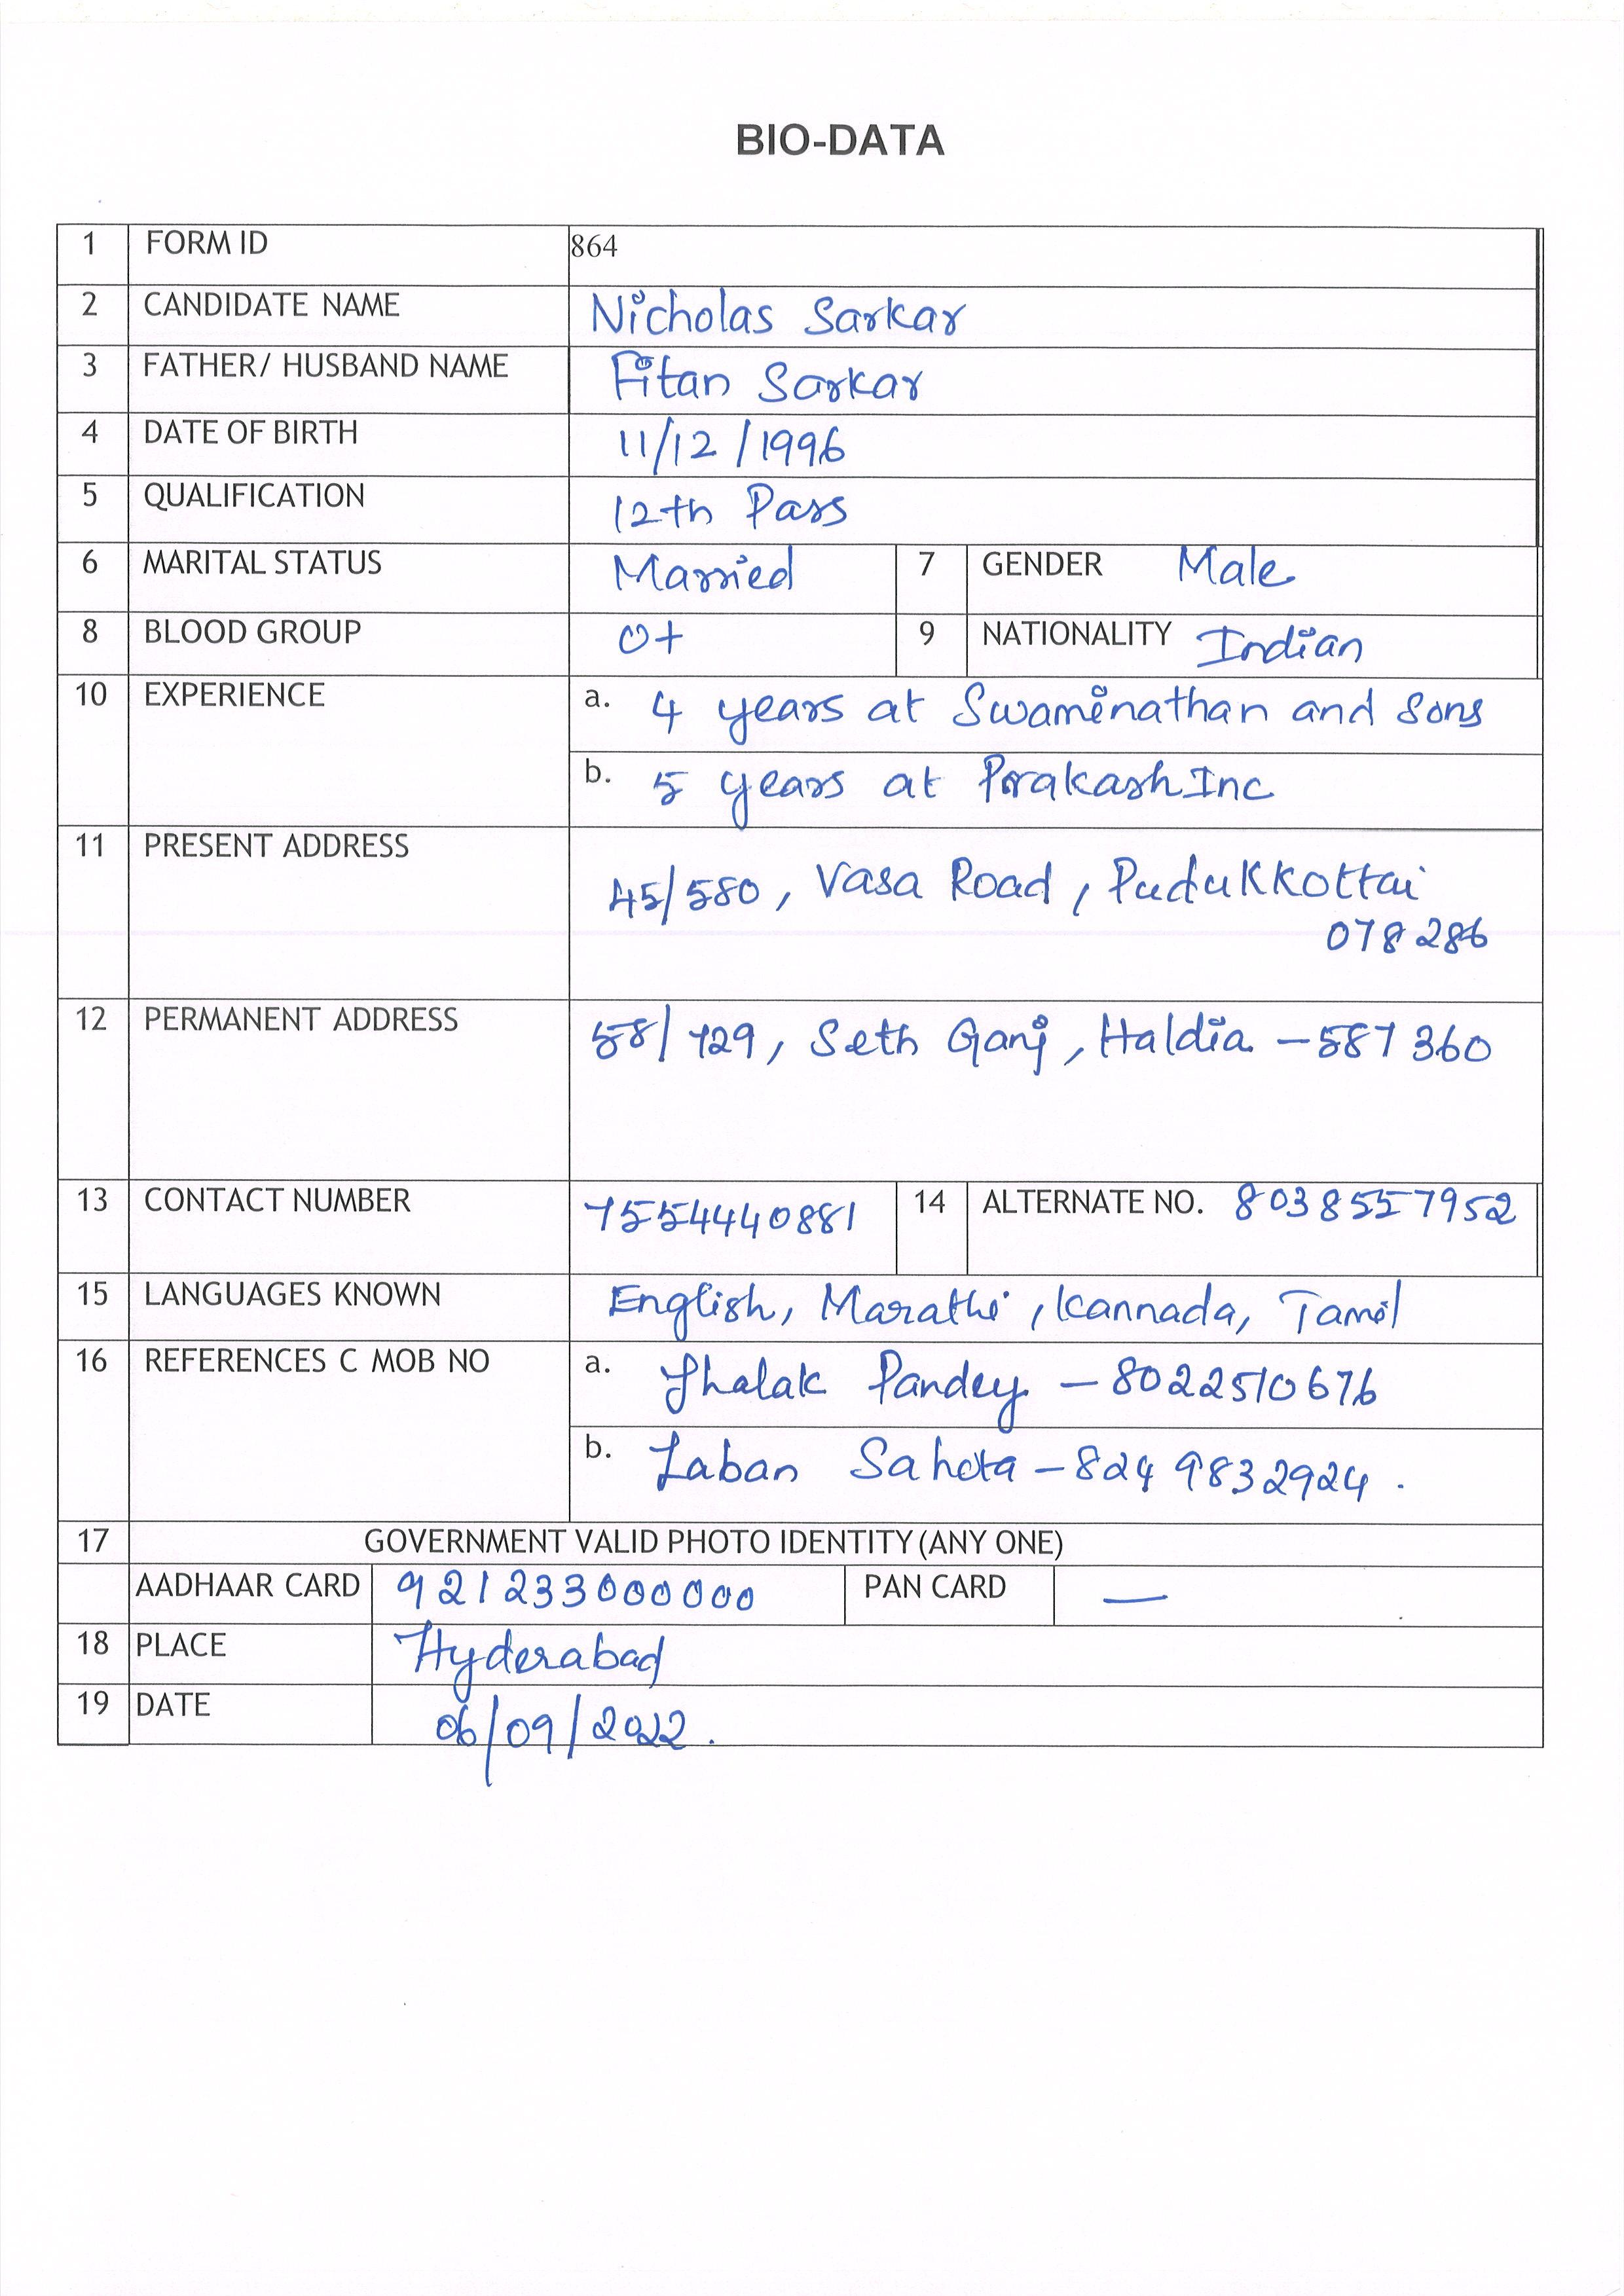 BIO-DATA
1 FORM ID 864
2 CANDIDATE NAME Nicholas Sarkar
3 FATHER/ HUSBAND NAME Fitan Sarkar
4 DATE OF BIRTH 11/12/1996
5 QUALIFICATION 12th Pass
6 MARITAL STATUS Married 7 GENDER Male
8 BLOOD GROUP O+ 9 NATIONALITY Indian
10 EXPERIENCE a. 4 years at Swaminathan and Sons
b. 5 years at Prakash Inc
11 PRESENT ADDRESS
45/580, Vasa Road, Pudukkottai
078286
12 PERMANENT ADDRESS 58/729, Seth Ganj, Haldia - 587360
13 CONTACT NUMBER 7554440881 14 ALTERNATE NO. 8038557952
15 LANGUAGES KNOWN English, Marathi, Kannada, Tamil
16 REFERENCES C MOB NO a. Jhalak Pandey - 8022510676
b. Laban Sahota - 8249832924.
17 GOVERNMENT VALID PHOTO IDENTITY (ANY ONE)
AADHAAR CARD 921233000000 PAN CARD —
18 PLACE Hyderabad
19 DATE 06/09/2022.